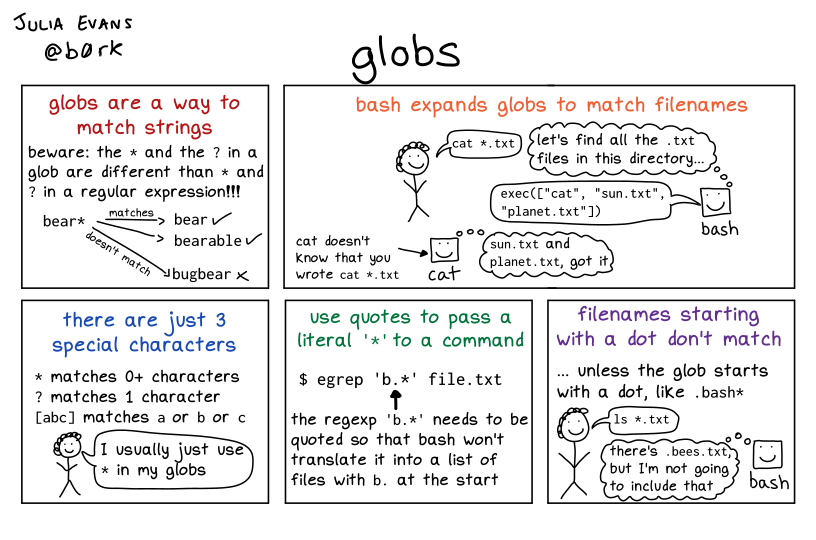 JULIA EVANS
@b0rk
globs
globs are a way to
match strings
beware: the * and the ? in a
glob are different than * and
? in a regular expression!!!
bear* matches bear ✓
bearable ✓
doesn't match
bugbear ×
bash expands globs to match filenames
cat *.txt
let's find all the .txt
files in this directory...
exec(["cat", "sun.txt",
"planet.txt"])
bash
cat doesn't
know that you
wrote cat *.txt
cat
sun.txt and
planet.txt, got it
there are just 3
special characters
* matches 0+ characters
? matches 1 character
[abc] matches a or b or c
I usually just use
* in my globs
use quotes to pass a
literal '*' to a command
$ egrep 'b.*' file.txt
the regexp 'b.*' needs to be
quoted so that bash won't
translate it into a list of
files with b. at the start
filenames starting
with a dot don't match
... unless the glob starts
with a dot, like .bash*
ls *.txt
there's .bees.txt,
but I'm not going
to include that
bash